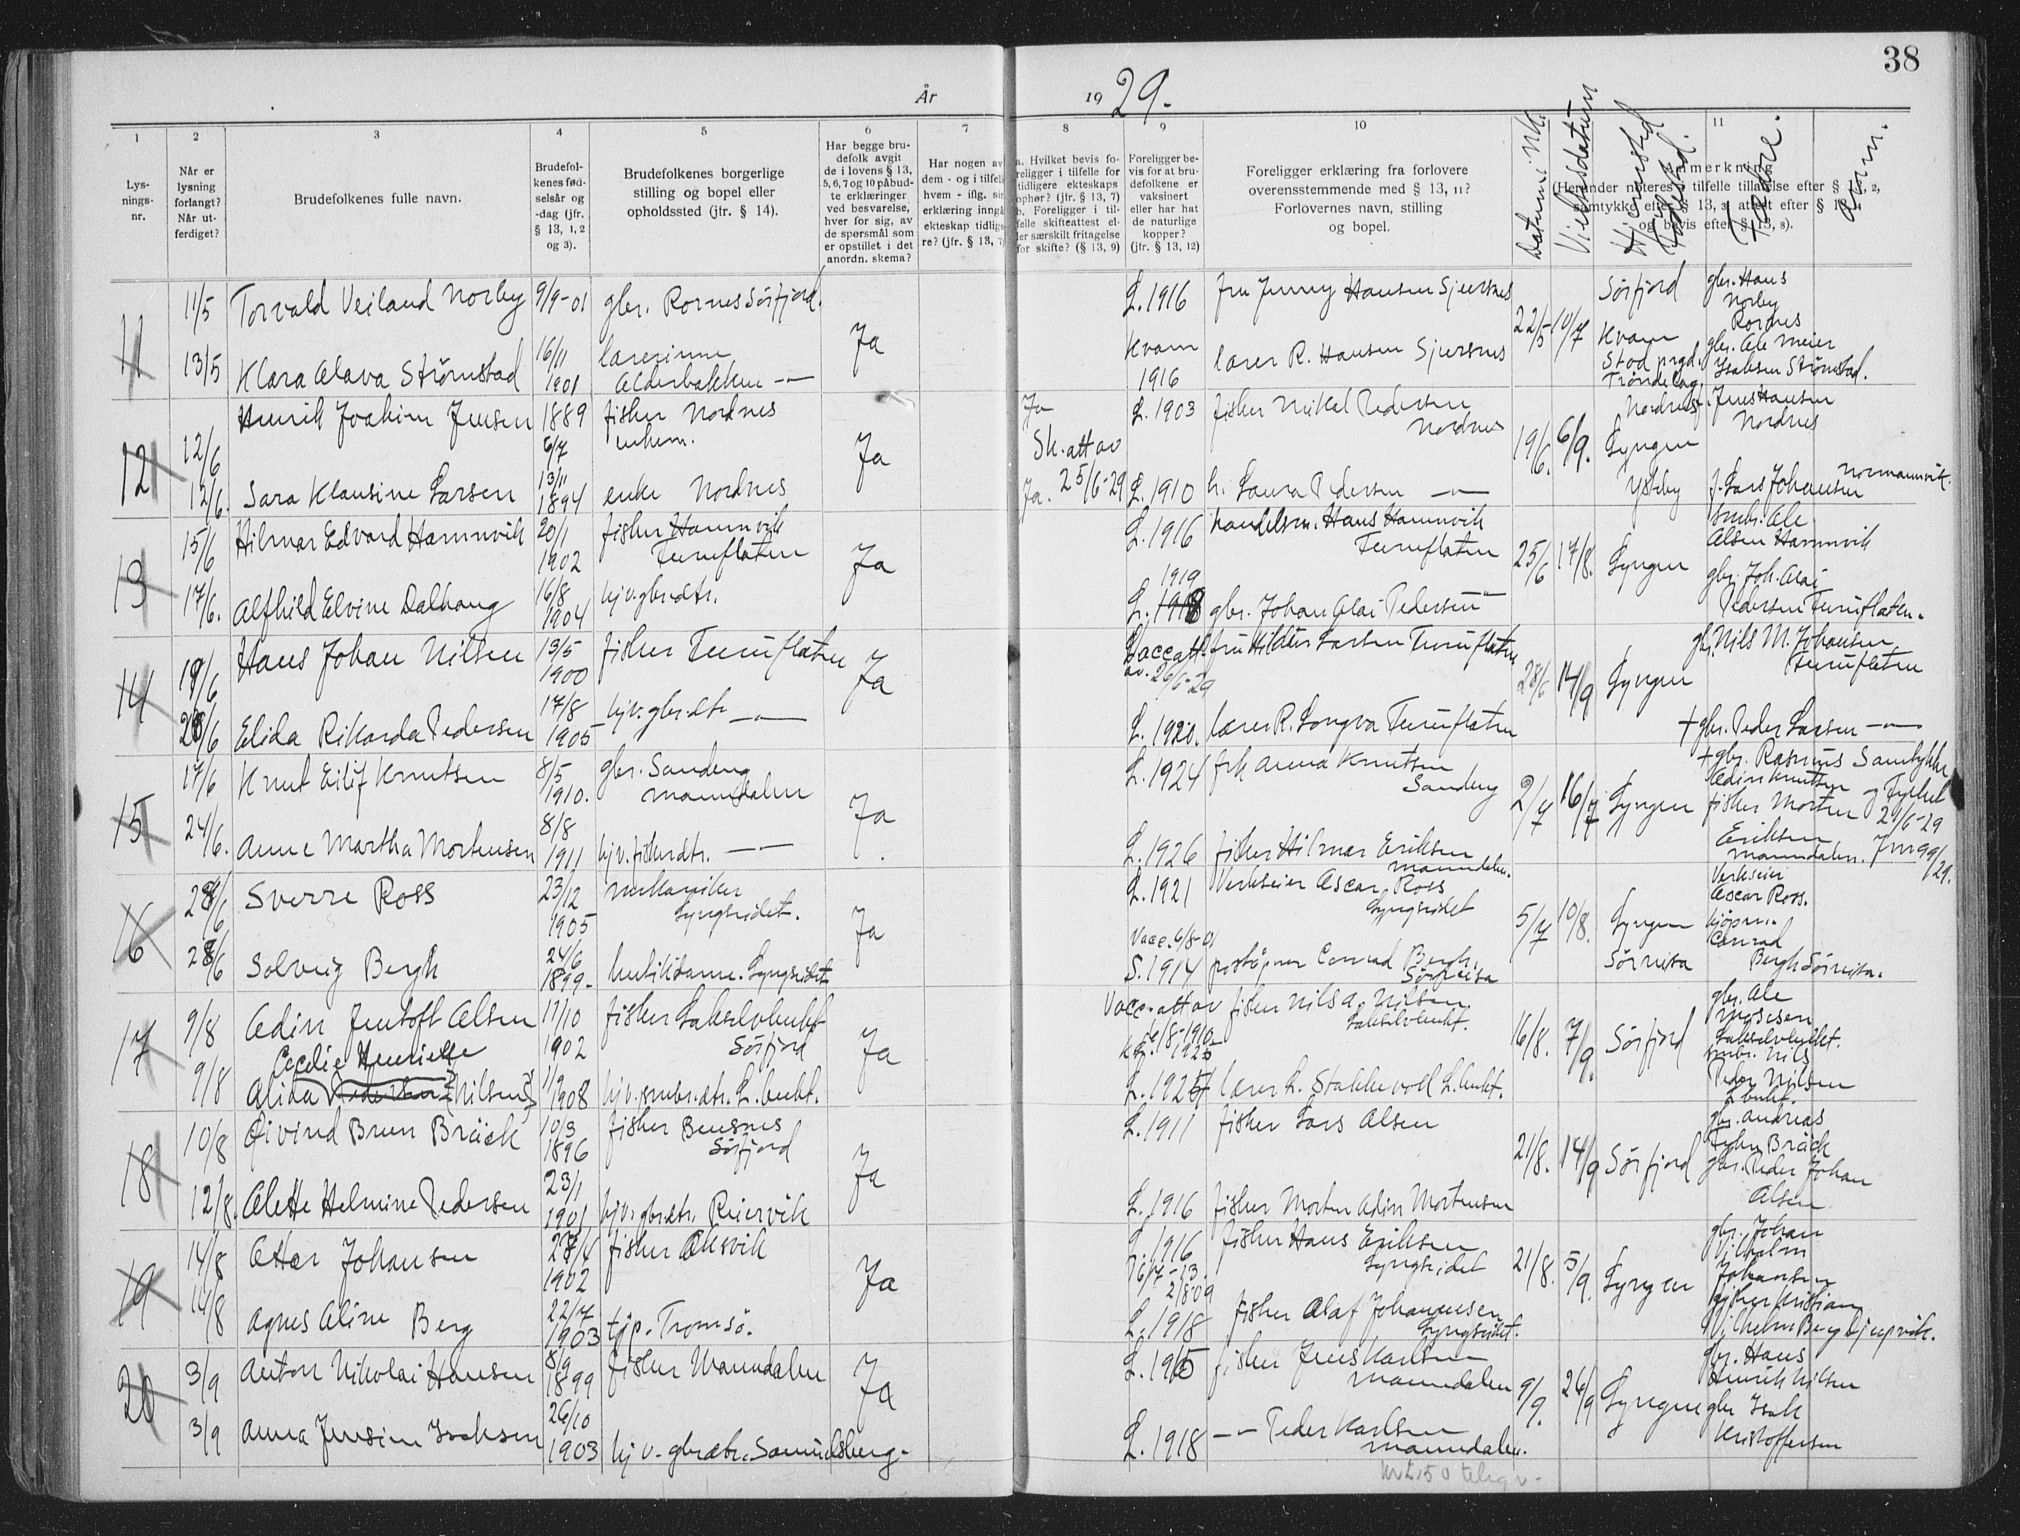 38
År 1929.
1 2 3 4 5 6 7 8 9 10 11
Lys-
nings-
nr.
Når er
lysning
forlangt?
Når ut-
ferdiget?
Brudefolkenes fulle navn.
Brudefol-
kenes fød-
selsår og
-dag (jfr.
§ 13, 1, 2
og 3).
Brudefolkenes borgerlige
stilling og bopel eller
opholdssted (jfr. § 14).
Har begge bru-
defolk avgit
de i lovens § 13,
5, 6, 7 og 10 påbud-
te erklæringer
ved besvarelse,
hver for sig, av
de spørsmål som
er opstillet i det
anordn. skema?
Har nogen av
dem - og i tilfelle
hvem - iflg. sin
erklæring inngå
ekteskap tidlige
re? (jfr. § 13, 7)
a. Hvilket bevis fo-
religger i tilfelle for
tidligere ekteskaps
ophør? (jfr. § 13, 7)
b. Foreligger i til-
felle skifteattest el-
ler særskilt fritagelse
for skifte? (§ 13, 9)
Foreligger be-
vis for at bru-
defolkene er
vaksinert
eller har hat
de naturlige
kopper?
(jfr. § 13, 12)
Foreligger erklæring fra forlovere
overensstemmende med § 13, 11?
Forlovernes navn, stilling
og bopel.
Datum i Nk.
Vielsesdatum
Hjemsted
Fødested.
Anmerkning
(Herunder noteres i tilfelle tillatelse efter § 1, 2,
samtykke efter § 13, 3, attest efter § 13, 4
og bevis efter § 13, 8).
Fædre.
Anm.
11 11/5 Torvald Veiland Norby 9/9-01 gbr. Rornes Sørfjord. Ja L. 1916 fru Jenny Hansen Sjursnes 22/5 10/7 Sørfjord gbr. Hans
Norby
Rornes
13/5 Klara Olava Strømstad 16/11
1901 lærerinne
Olderbakken -"- Kvam
1916 lærer R. Hansen Sjursnes Kvam
Stod prgd.
Trøndelag. gbr. Ole Meier
Isaksen Strømstad.
12 12/6 Henrik Joakim Jensen 1889
6/7 fisker Nordnes
enkem. Ja Ja
Sk. att av
25/6-29 L. 1903 fisker Mikal Pedersen
Nordnes 19/6. 6/9. Nordnes
Lyngen f. Jens Hansen
Nordnes
12/6. Sara Klausine Larsen 13/11
1894 enke Nordnes Ja. L. 1910 h. Laura Pedersen -"- Ysteby f. Lars Johansen Normannvik.
13 15/6 Hilmar Edvard Hamnvik 20/1
1902 fisker Hamnvik
Furuflaten Ja L. 1916 handelsm. Hans Hamnvik
Furuflaten 25/6 17/8. Lyngen smbr. Ole
Olsen Hamnvik
17/6. Alfhild Elvine Dalhaug 16/8
1904 hjv. gbr.dtr. 1919
L. 1918 gbr. Johan Olai Pedersen -"- gbr. Joh. Olai
Pedersen Furuflaten.
14 19/6 Hans Johan Nilsen 13/5
1900 fisker Furuflaten Ja Vacc att.
av. 26/6-29 fru Hildur Larsen Furuflaten 28/6 14/9 Lyngen gbr. Nils M. Johansen
Furuflaten
28/6 Elida Rikarda Pedersen 17/8
1905 hjv. gbr.dtr -"- L. 1920. lærer R. Longva Furuflaten + gbr. Peder Larsen -"-
15 17/6 Knut Eilif Knutsen 8/5
1910. gbr. Sandeng
Manndalen Ja L. 1924 frk Anna Knutsen
Sandeng 2/7 16/7 Lyngen + gbr. Rasmus
Odin Knutsen Samtykke
24/6. Anne Martha Mortensen 8/8
1911 hjv. fisker.dtr. -"- L. 1926 fisker Hilmar Eriksen
Manndalen. fisker Morten
Eriksen
Manndalen. 21/6-29
16 28/6 Sverre Ross 23/12
1905 mekaniker
Lyngseidet. Ja L. 1921 Verkseier Oscar Ross
Lyngseidet 5/7 10/8. Lyngen Verkseier
Oscar Ross.
28/6 Solveig Bergh 24/6
1899. butikdame. Lyngseidet Vacc. 6/8-01
S. 1914 poståpner Conrad Bergh.
Sørreisa Sørreisa kjøpm.
Conrad
Bergh Sørreisa.
17 9/8 Odin Jentoft Olsen 17/10
1902 fisker Lakselvbukt
Sørfjord Ja Vacc. att av
6/8-1910
1925 fisker Nils A. Nilsen
Lakselvbukt. 16/8. 7/9. Sørfjord gbr. Ole
Mosesen
Lakselvbukt.
9/8 Cecilie Henriette
Alida Pedersen (Nilsen) 1/9
1908 hjv. smbr.dtr. L.bukt. L. 1925 lærer L. Stakkevoll L.bukt. smbr. Nils
Peder Nilsen
L.bukt.
18 10/8 Øivind Brun Bräck 10/3
1896 fisker Bensnes
Sørfjord Ja L. 1911 fisker Lars Olsen 21/8. 14/9 Sørfjord gbr. Andreas
Fyhn Bräck
12/8. Alette Helmine Pedersen 23/1
1901 hjv. gbr.dtr. Reiervik L. 1916 fisker Morten Odin Mortensen gbr. Peder Johan
Olsen
19 14/8 Otter Johansen 28/4
1902 fisker Oksvik Ja L 1916
16/7-13. fisker Hans Eriksen
Lyngseidet 21/8. 5/9. Lyngen gbr. Johan
Vilhelm
Johansen
14/8 Agnes Oline Berg 22/7
1903 tjp. Tromsø. 2/8 09
L. 1918 fisker Olaf Johannesen
Lyngseidet. fisker Kristian
Vilhelm Berg Djupvik.
20 3/9 Anton Nikolai Hansen 8/9
1899 fisker Manndalen Ja L. 1915 fisker Jens Karlsen
Manndalen 9/9. 26/9 Lyngen gbr. Hans
Henrik Nilsen
3/9 Anna Jensine Isaksen 26/10
1903 hjv. gbr.dtr. Samuelsberg. L. 1918 -"- Peder Karlsen
Manndalen. gbr Isak
Kristoffersen